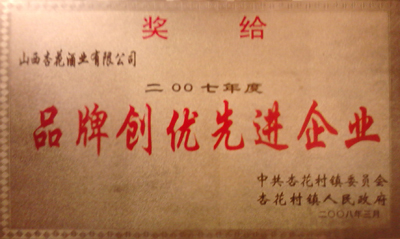 奖给
山西杏花酒业有限公司
二00七年度
品牌创优先进企业
中共杏花村镇委员会
杏花村镇人民政府
二〇〇八年三月